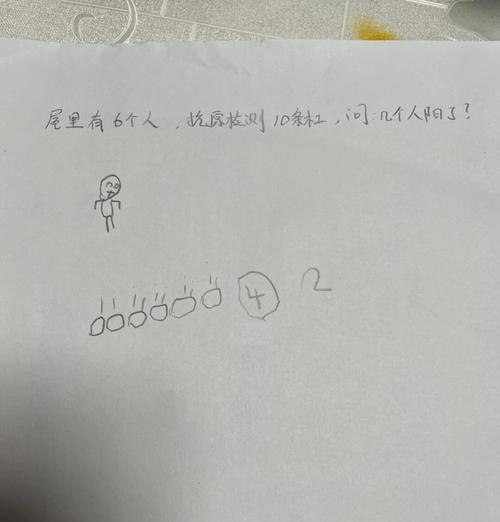 屋里有6个人，抗原检测10条杠，问：几个人阳了？
④ 2